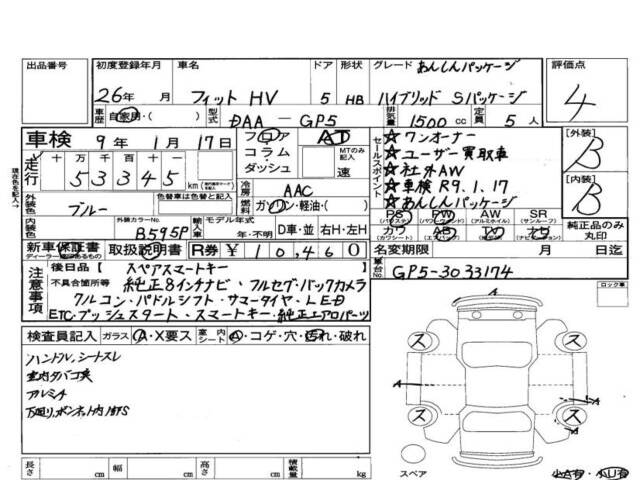 出品番号 初度登録年月 車名 ドア 形状 グレード あんしんパッケージ 評価点
26年 月 フィット HV 5 HB ハイブリッド Sパッケージ 4
車歴 自家用・( ) 型式 DAA-GP5 排気量 1500cc 定員 5人
車検 9年 1月 17日 フロア コラム ダッシュ AT MTのみ記入 速
走行 十万千百十一 53345 km
現在色を記入→
外装色 ブルー 色替車は色替前の色
冷房 AAC
燃料 ガソリン・軽油・( )
内装色 外装カラーNo. B595P 輸入車 モデル年式 年・不明 D車・並 右H・左H
セールスポイント
☆ワンオーナー
☆ユーザー買取車
☆社外AW
☆車検 R9.1.17
[外装] B
[内装] B
PS (パワステ) PW (パワーウインド) AW (アルミホイル) SR (サンルーフ)
カワ (カワシート) AB (エアバッグ) TV ナビ 純正品のみ丸印
新車保証書 ディーラー確認印あるもの 取扱説明書 R券 ¥10,460
名変期限 月 日迄
車台No. GP5-3033174
注意事項 後日品 [ スペアスマートキー ]
不具合箇所等 純正8インチナビ、フルセグ・バックカメラ
クルコン・パドルシフト・サマータイヤ・LED
ETC・プッシュスタート、スマートキー・純正エアロパーツ
検査員記入 ガラス A・X要ス 室内シート A・コゲ・穴・汚れ・破れ
ハンドル、シートスレ
室内タバコ臭
アルミA
ロック車
ス ス
ス ス
A A
スペア
小A有・小U有
長さ cm 幅 cm 高さ cm 積載量 kg